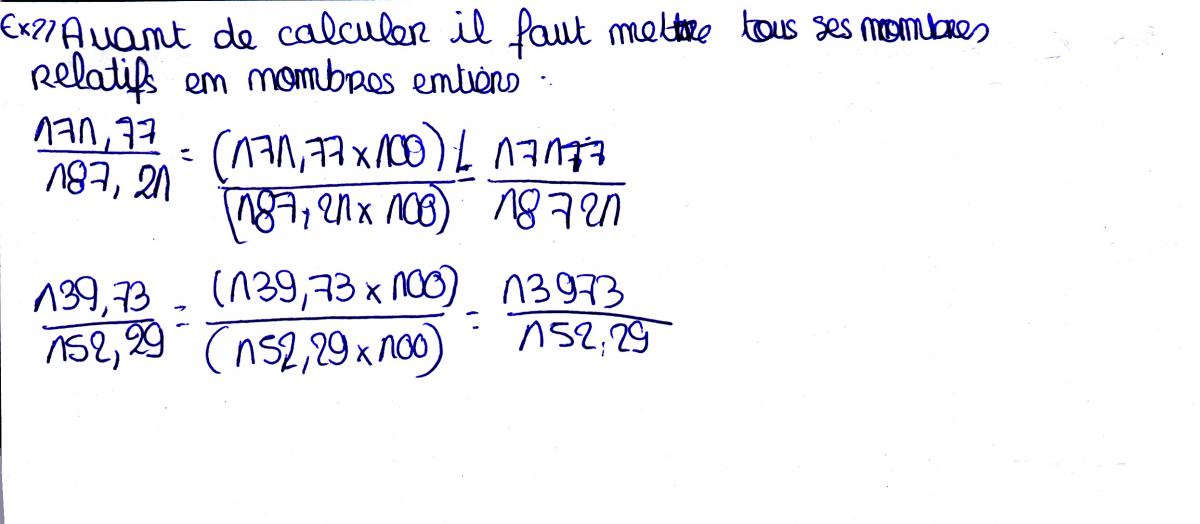 Ex 27 Avant de calculer il faut mettre tous ses nombres
relatifs en nombres entiers .
171,77 / 187,21 = (171,77 x 100) / (187,21 x 100) = 17177 / 18721
139,73 / 152,29 = (139,73 x 100) / (152,29 x 100) = 13973 / 152,29